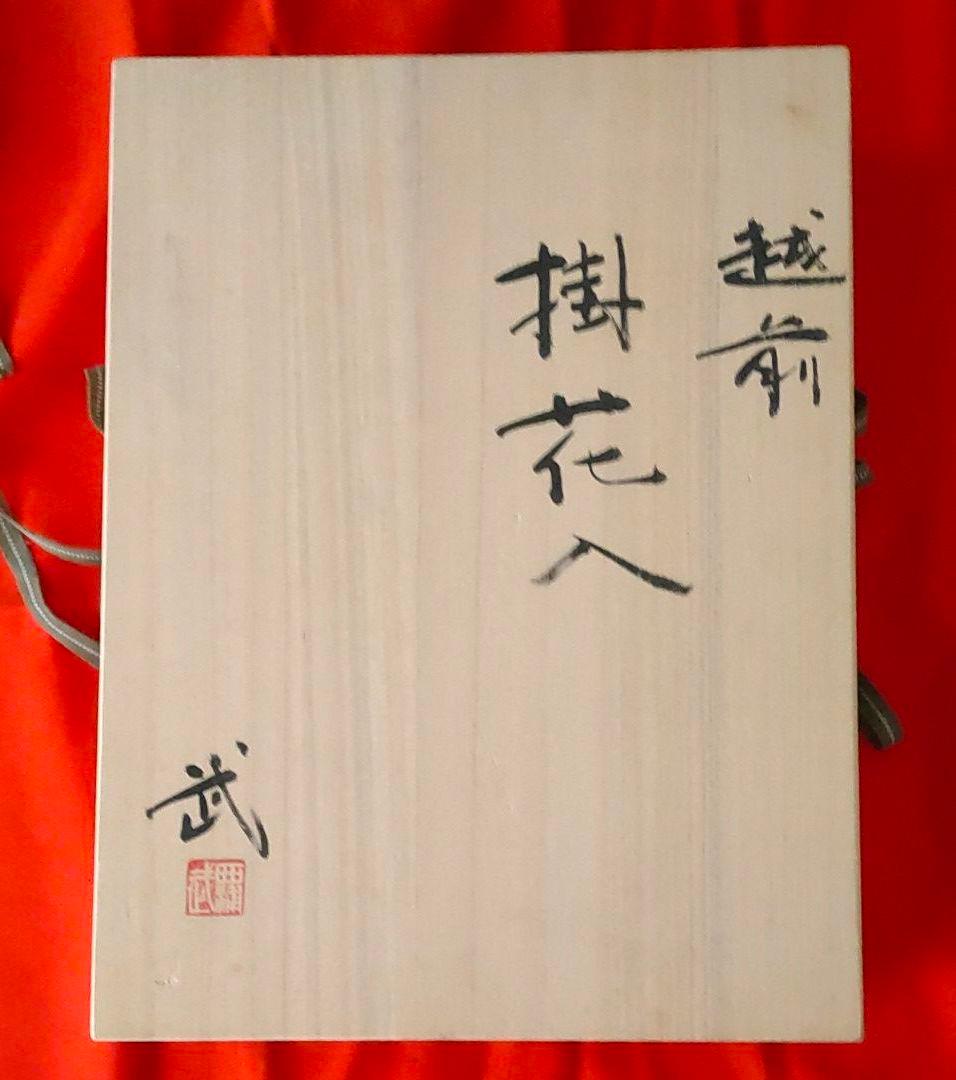 越前
掛花入
武